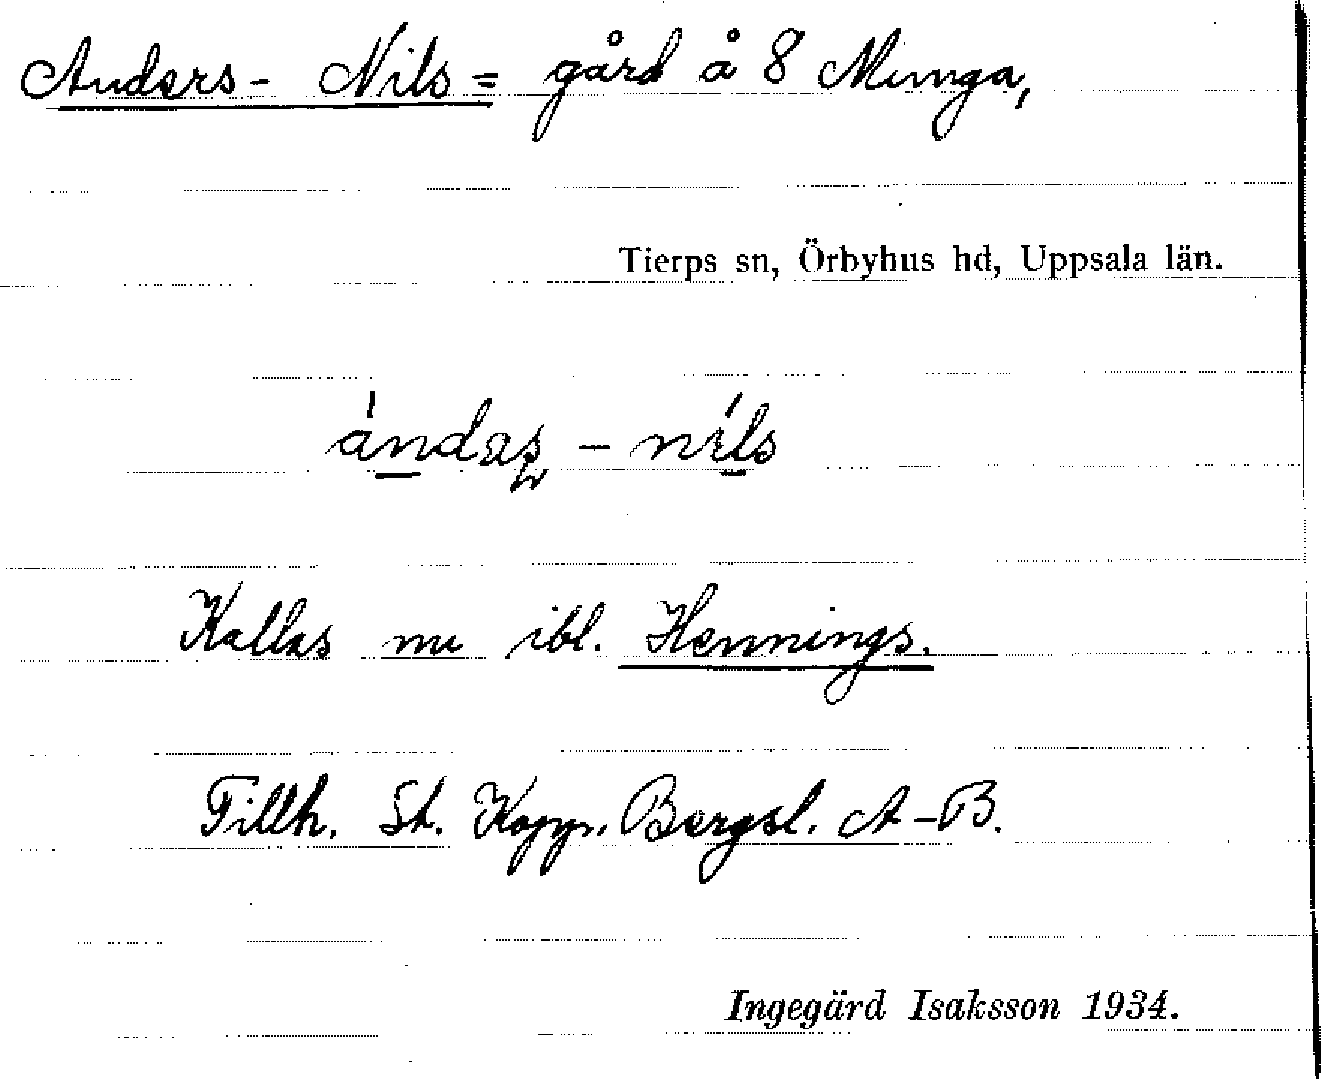 Anders- Nils = gård å 8 Munga,
Tierps sn, Örbyhus hd, Uppsala län.
ándas – níls
Kallas nu ibl. Hennings.
Tillh. St. Kopp. Bergsl. A–B.
Ingegärd Isaksson 1934.